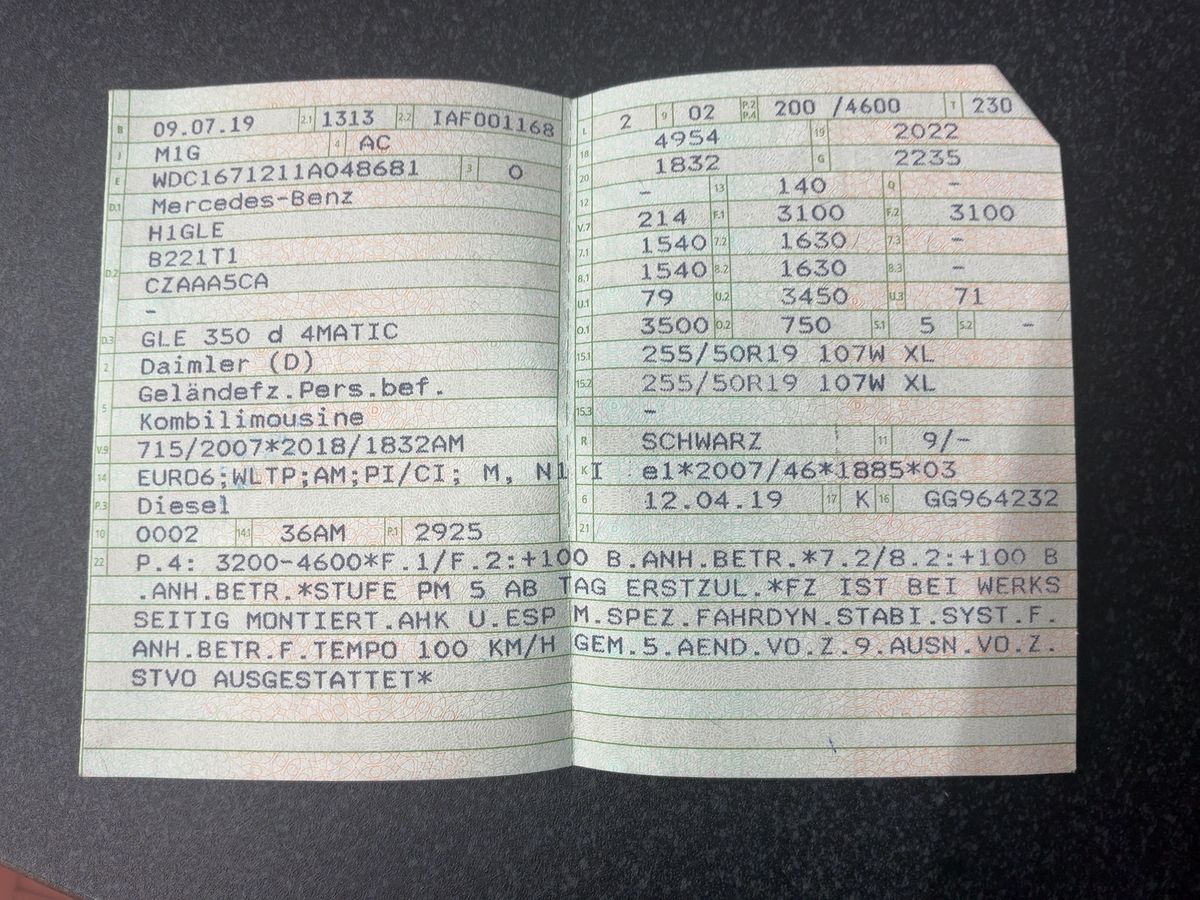 B 09.07.19 2.1 1313 2.2 IAF001168
J M1G 4 AC
E WDC1671211A048681 3 0
D.1 Mercedes-Benz
D.2 H1GLE
B221T1
CZAAA5CA
-
D.3 GLE 350 d 4MATIC
2 Daimler (D)
5 Geländefz.Pers.bef.
Kombilimousine
V.9 715/2007*2018/1832AM
14 EURO6;WLTP;AM;PI/CI; M, N1 I
P.3 Diesel
10 0002 14.1 36AM P.1 2925
L 2 9 02 P.2 P.4 200 /4600 T 230
18 4954 19 2022
20 1832 G 2235
12 - 13 140 Q -
V.7 214 F.1 3100 F.2 3100
7.1 1540 7.2 1630 7.3 -
8.1 1540 8.2 1630 8.3 -
U.1 79 U.2 3450 U.3 71
O.1 3500 O.2 750 S.1 5 S.2 -
15.1 255/50R19 107W XL
15.2 255/50R19 107W XL
15.3 -
R SCHWARZ 11 9/-
K e1*2007/46*1885*03
6 12.04.19 17 K 16 GG964232
21
22 P.4: 3200-4600*F.1/F.2:+100 B.ANH.BETR.*7.2/8.2:+100 B
.ANH.BETR.*STUFE PM 5 AB TAG ERSTZUL.*FZ IST BEI WERKS
SEITIG MONTIERT.AHK U.ESP M.SPEZ.FAHRDYN.STABI.SYST.F.
ANH.BETR.F.TEMPO 100 KM/H GEM.5.AEND.VO.Z.9.AUSN.VO.Z.
STVO AUSGESTATTET*